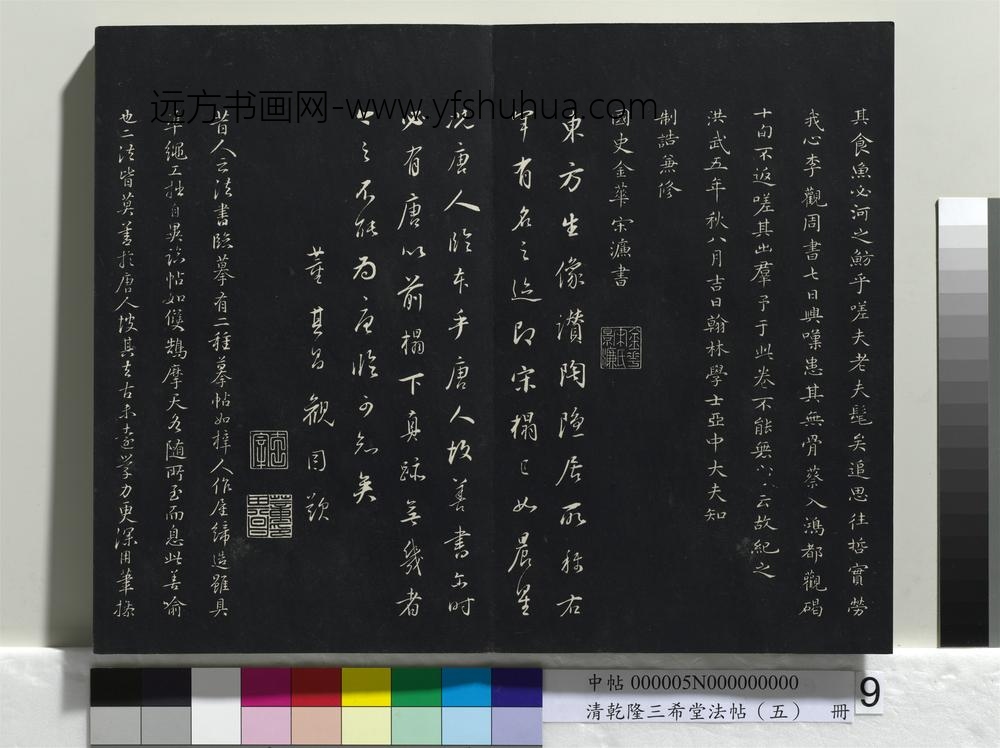 远方书画网-www.yfshuhua.com
其食魚必河之魴乎嗟夫老夫髦矣追思往哲實勞
我心李觀周書七日興嘆患其無骨蔡入鴻都觀碣
十旬不返嗟其出羣予于此卷不能無以云故紀之
洪武五年秋八月吉日翰林學士亞中大夫知
制誥兼修
國史金華宋濂書
金華宋氏景濂
東方生像讃陶隱居所稱右
軍有名之迹即宋榻已如晨星
況唐人臨本乎唐人故善書尔时
必有唐以前榻下真跡無幾者
之不能为唐臨可知矣
董其昌觀因題
昔人云法書臨摹有二種摹帖如梓人作屋締造雖具
準繩工拙自異臨帖如雙鵠摩天各随所至而息此善喻
也二法皆莫善於唐人彼其去古未遠学力更深用筆
中帖 000005N000000000
清乾隆三希堂法帖（五） 冊
9